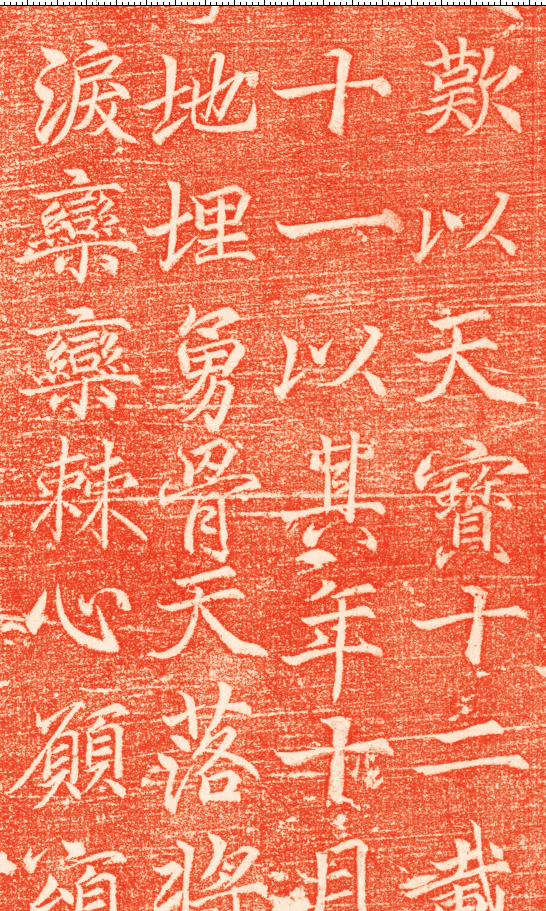 歎以天寶十二載
十一以其年十月
地埋勇骨天落將
淚欒欒棘心願頌